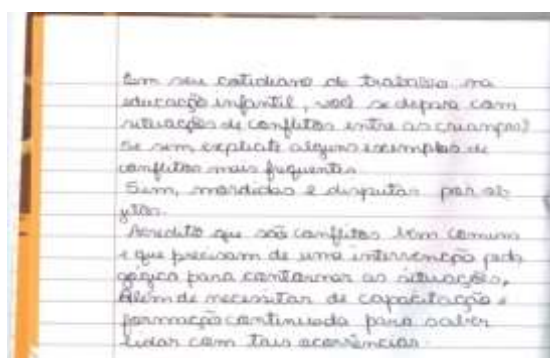 Em seu cotidiano de trabalho na
educação infantil, você se depara com
situações de conflitos entre as crianças?
Se sim explicite alguns exemplos de
conflitos mais frequentes.
Sim, mordidas e disputas por ob
jetos.
Acredito que são conflitos bem comuns
e que precisam de uma intervenção peda
gógica para contornar as situações,
Além de necessitar de capacitação e
formação continuada para saber
lidar com tais ocorrências.